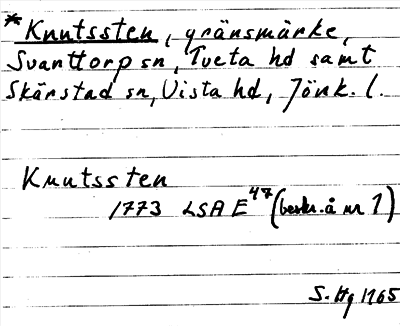 *Knutssten, gränsmärke,
Svanttorp sn, Tveta hd samt
Skärstad sn, Vista hd, Jönk. l.
Knutssten
1773 LSA E47 (beskr. å nr 1)
S. Hg 1965